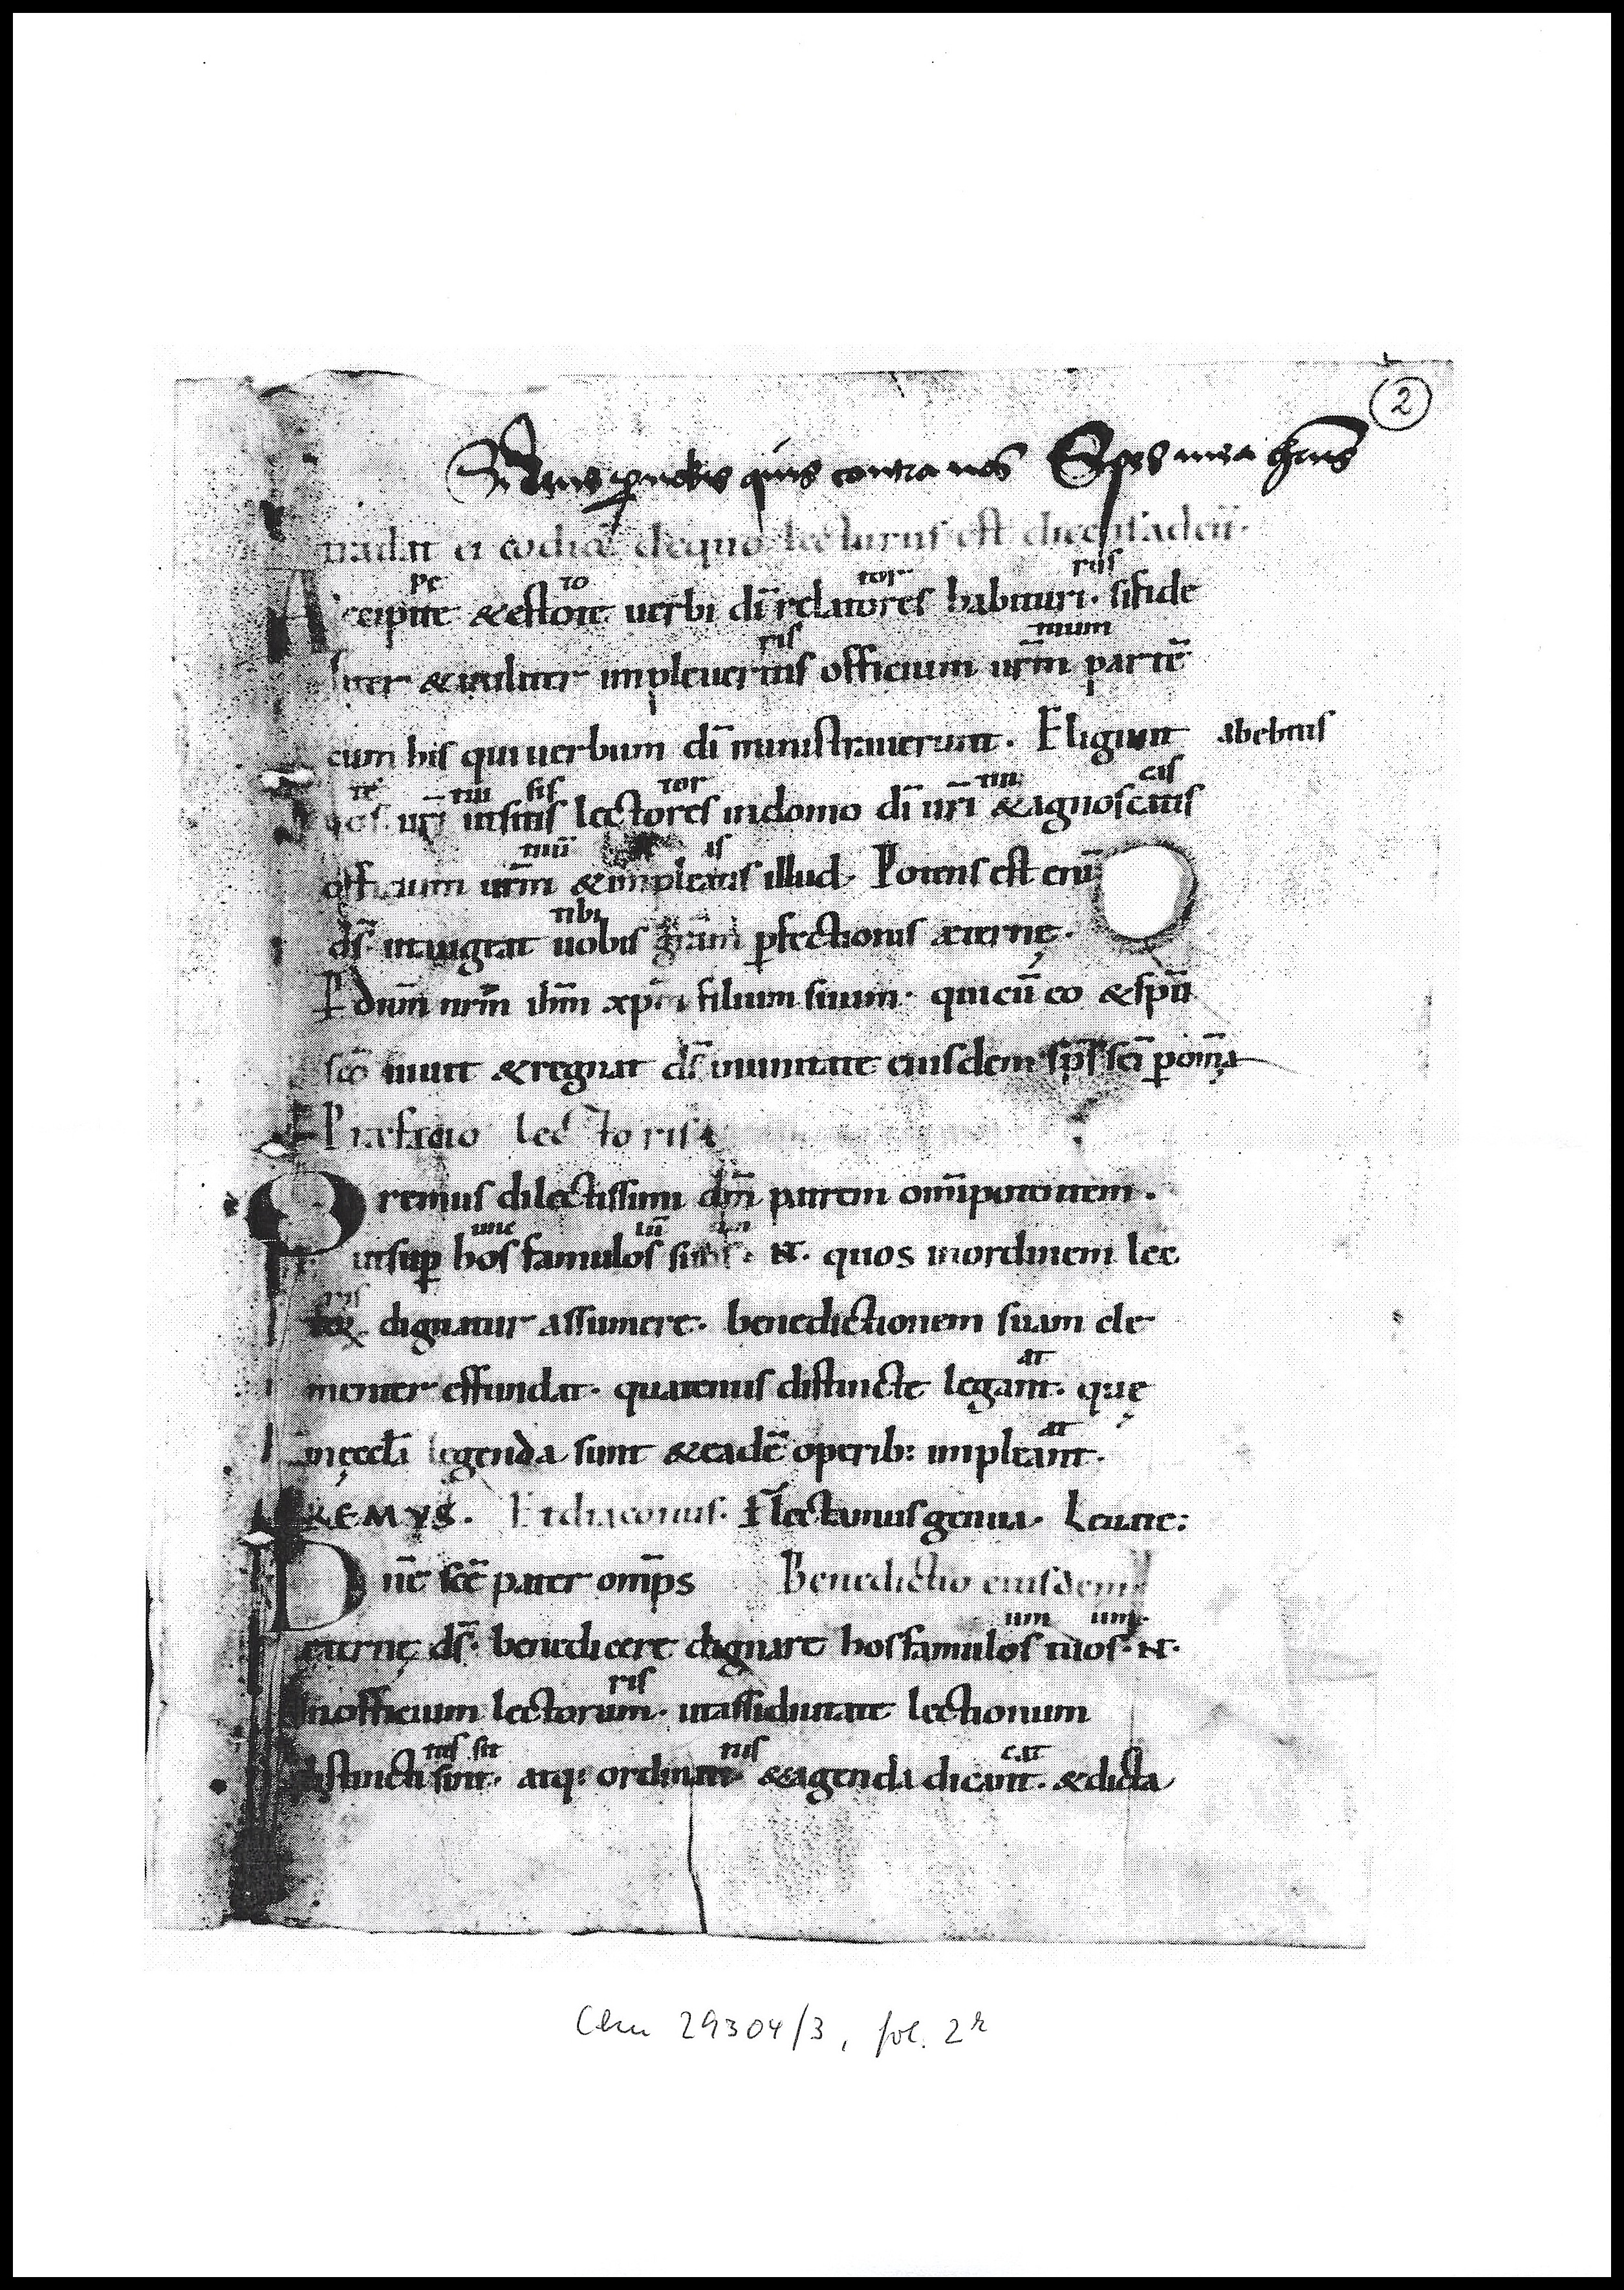 2
Si deus pro nobis quis contra nos Spes mea
tradat ei codicē dequo lecturus est dicens adeū·
pe to tor rus
Accipite &estote uerbi dī relatores habituri· sifide
ris mum
liter &utiliter impleueritis officium urm̄ partē
cum his qui uerbum dī ministrauerunt· Eligunt abebtus
te tui sis tor tui cas
uos· urī utsitis lectores indomo dī urī &agnoscatis
tuū as
officium urm̄ &impleatis illud· Potens est enī
tibi
ds̄· utaugeat uobis gratm̄ pfectionis æternę·
P dnm̄ nrm̄ ihm̄ xpm̄ filium suum· quicū eo &spū
scō uiuit &regnat ds̄ inunitate eiusdem sps̄ scī p om̄a
Praefatio lectoris
Oremus dilectissimi dm̄ patrem om̄ipotentem·
unc lū
utsup hos famulos suos· N· quos inordinem lec
ris
torꝝ dignatur assumere· benedictionem suam cle
at
menter effundat· quatenus distincte legant· quę
at
inęccłi legenda sunt &eadē operib: impleant·
OREMVS· Et diaconus· Flectamus genua· Leuate:
Dnē scē pater om̄ps Benedictio eiusdem
um um
eternę ds̄· benedicere dignare hos famulos tuos· N·
ris
inofficium lectorum· utassiduitate lectionum
tus sit tus cat
distincti sint· atq: ordinati· &agenda dicant· &dicta
Clm 29304/3, fol. 2r